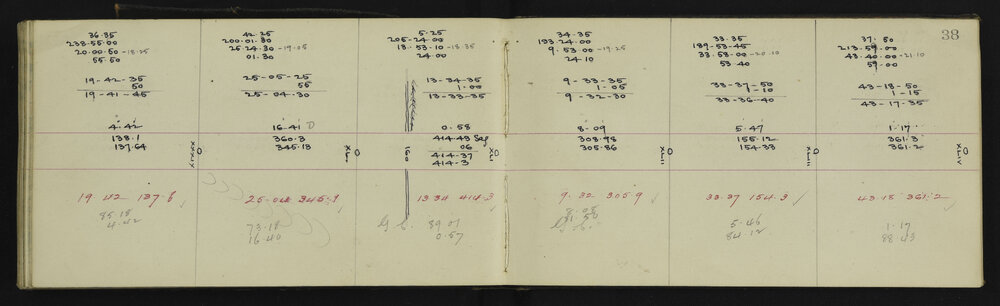 38
36.35
238.55.00
20.00.50 - 18.25
55.50
19-42-35
50
19-41-45
4.42
138.1
137.64
XXXIX
19 42 137.6 ✓
85.18
4.42
42.25
200.01.30
25 24.30 - 19.05
01.30
25-05-25
55
25-04-30
16.41 D
360.3
345.13
XL
25.04 345.1
73.18
16 40
5.25
205-24.00
13.53.10 - 18.35
24.00
13-34-35
1.00
13-33-35
160
0.58
414.43 Sag
06
414.37
414.3
XLI
13 34 414.3 ✓
89.01
0.57
34.35
193.24.00
9.53 00 - 19.25
24.10
9-33-35
1-05
9-32-30
8.09
308.98
305.86
XLII
9.32 305 9 ✓
8.08
81.50
33.35
189-53-45
33.58.00 - 20.10
53.40
33-37-50
1-10
33-36-40
5.47
155.12
154.33
XLIII
33.37 154.3 ✓
5.46
84.12
37.50
213-59.00
43-40.00 - 21.10
59.00
43-18-50
1-15
43-17-35
1.17
361.3
361.2
XLIV
43.18 361.2 ✓
1.17
88.43